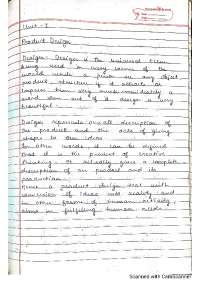 Unit - I
Product Design
Design:- Design is the universal term
being used in every corner of the
world while a person in any object
product, structure if it attracts or
impress him very much immediately a
word born out if it design is very
beautiful.
Design represents overall description of
the product and the acts of giving
shapes to the ideas
In other words it can be defined
that it is the product of creative
thinking. It actually gives a complete
description of an product and its
production.
Hence a product design deal with
conversion of ideas into reality and
in other forms of human activity
aims in fulfiling human needs.
Scanned with CamScanner